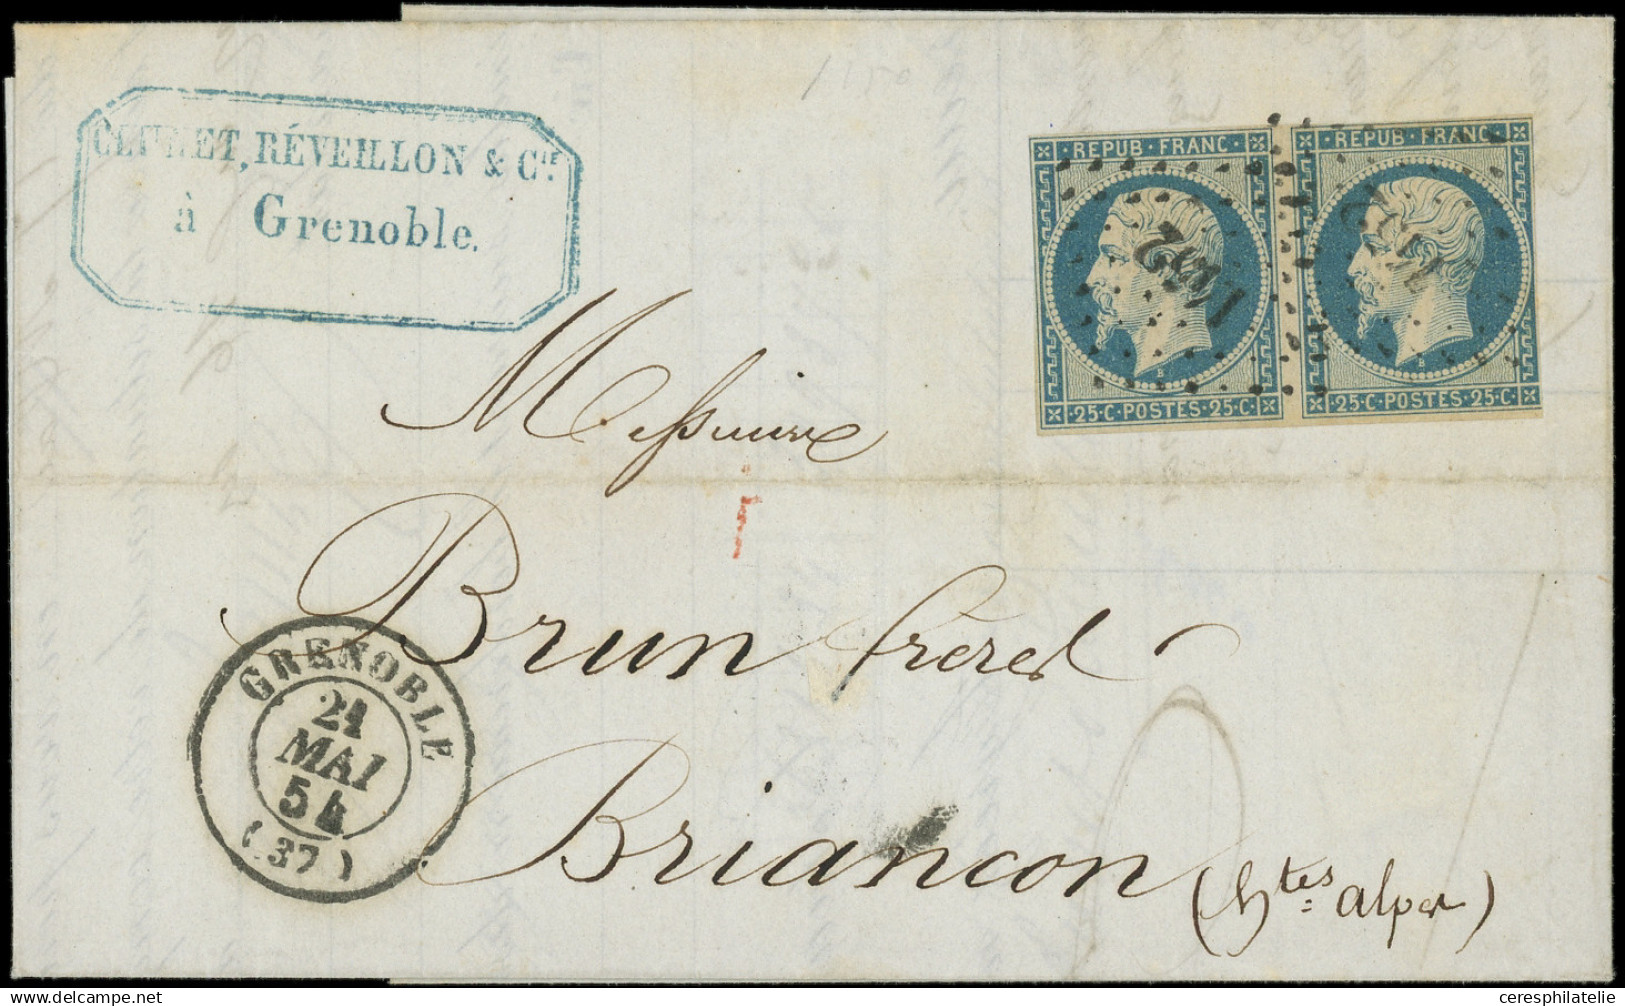 RÉVEILLON & CIE
à Grenoble.
REPUB·FRANC·
25·C·POSTES·25·C·
REPUB·FRANC·
25·C·POSTES·25·C·
Messieurs
Brun frères
Briançon (htes alpes)
GRENOBLE
21
MAI
54
(37)
www.delcampe.net
ceresphilatelie